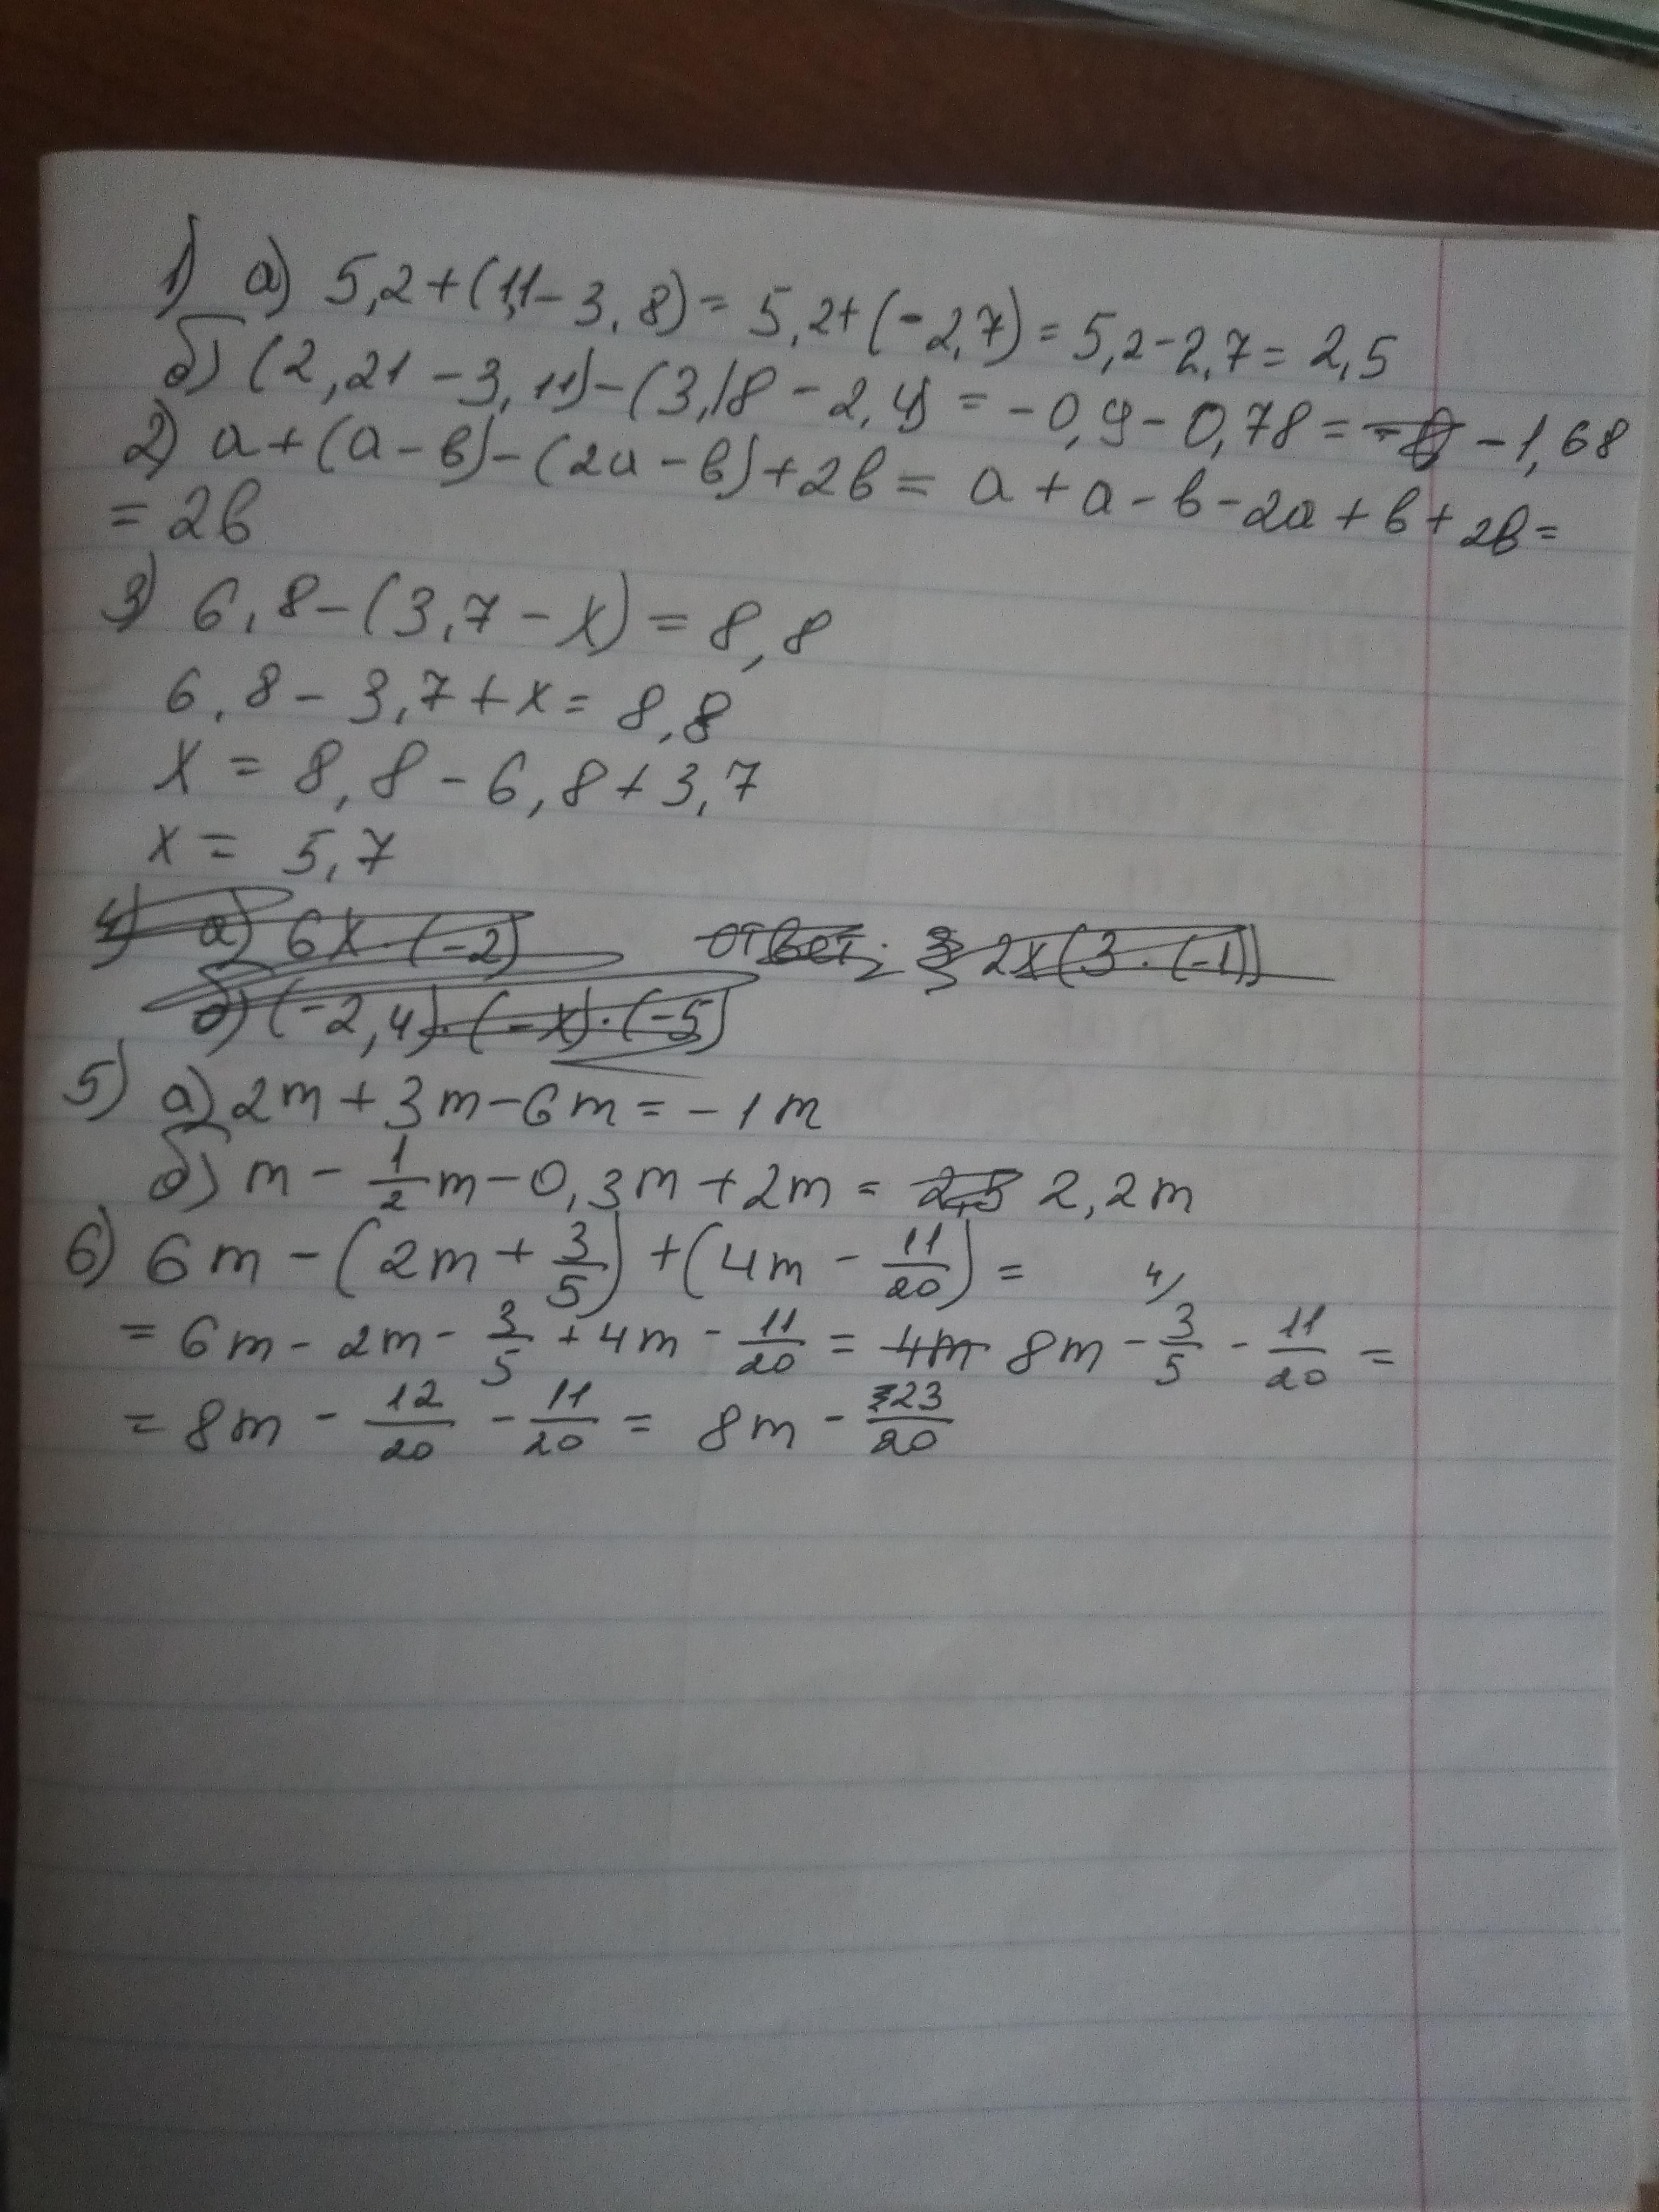 1) а) 5,2+(1,1-3,8)=5,2+(-2,7)=5,2-2,7=2,5
б) (2,21-3,11)-(3,18-2,4)=-0,9-0,78=-1,68
2) а+(а-в)-(2а-в)+2в=а+а-в-2а+в+2в=
=2в
3) 6,8-(3,7-х)=8,8
6,8-3,7+х=8,8
х=8,8-6,8+3,7
х=5,7
4) а) 6х·(-2) ответ: 2х(3·(-1))
б) (-2,4)·(-х)·(-5)
5) а) 2m+3m-6m=-1m
б) m-1/2m-0,3m+2m=2,2m
6) 6m-(2m+3/5)+(4m-11/20)=
4/
=6m-2m-3/5+4m-11/20=4m 8m-3/5-11/20=
=8m-12/20-11/20=8m-23/20